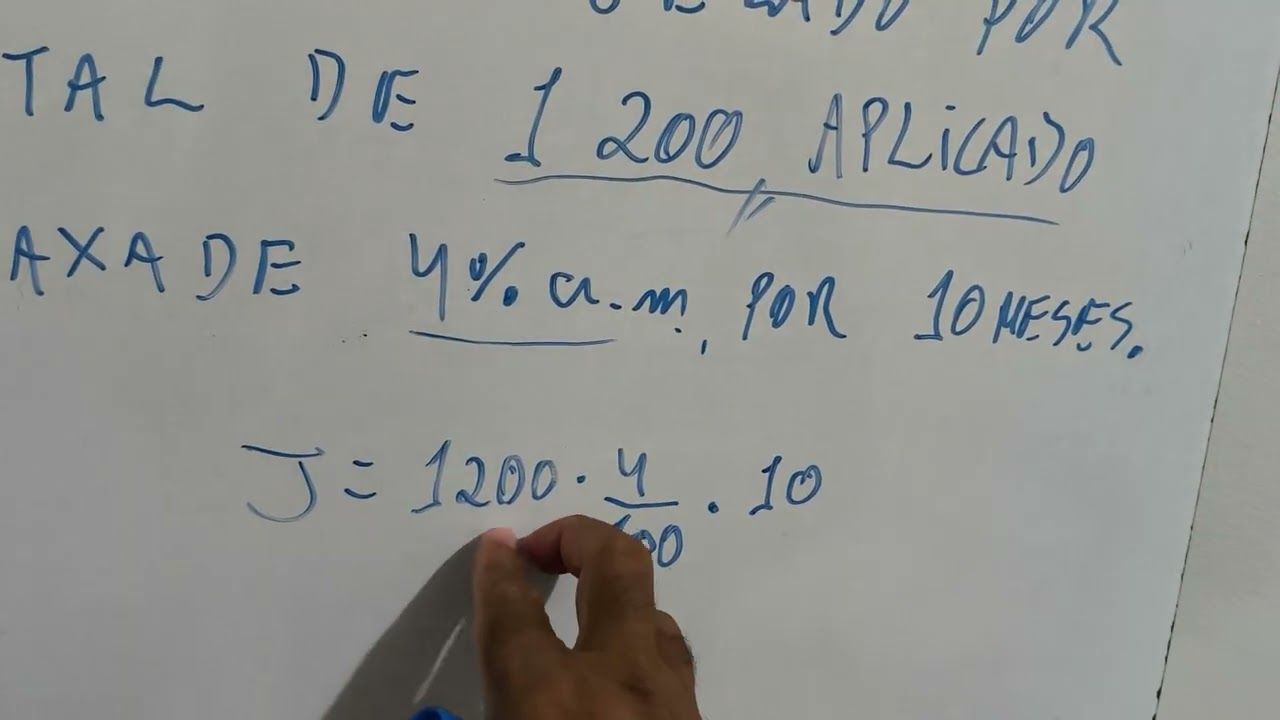 POR
TAL DE 1 200 APLICADO
AXA DE 4% a.m., POR 10 MESES.
J = 1200 · 4/100 · 10